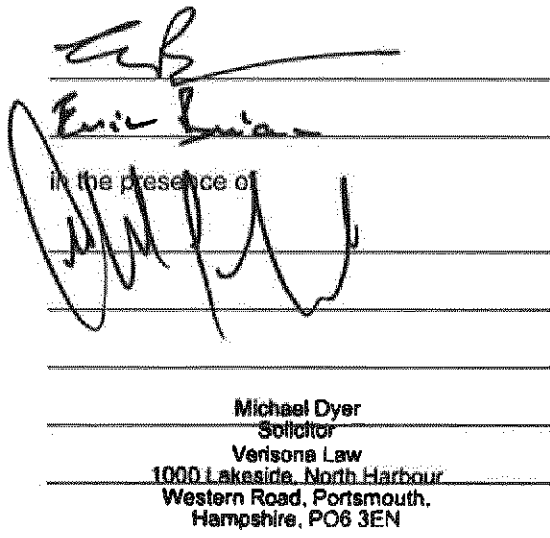 in the presence of
Michael Dyer
Solicitor
Verisona Law
1000 Lakeside, North Harbour
Western Road, Portsmouth,
Hampshire, PO6 3EN